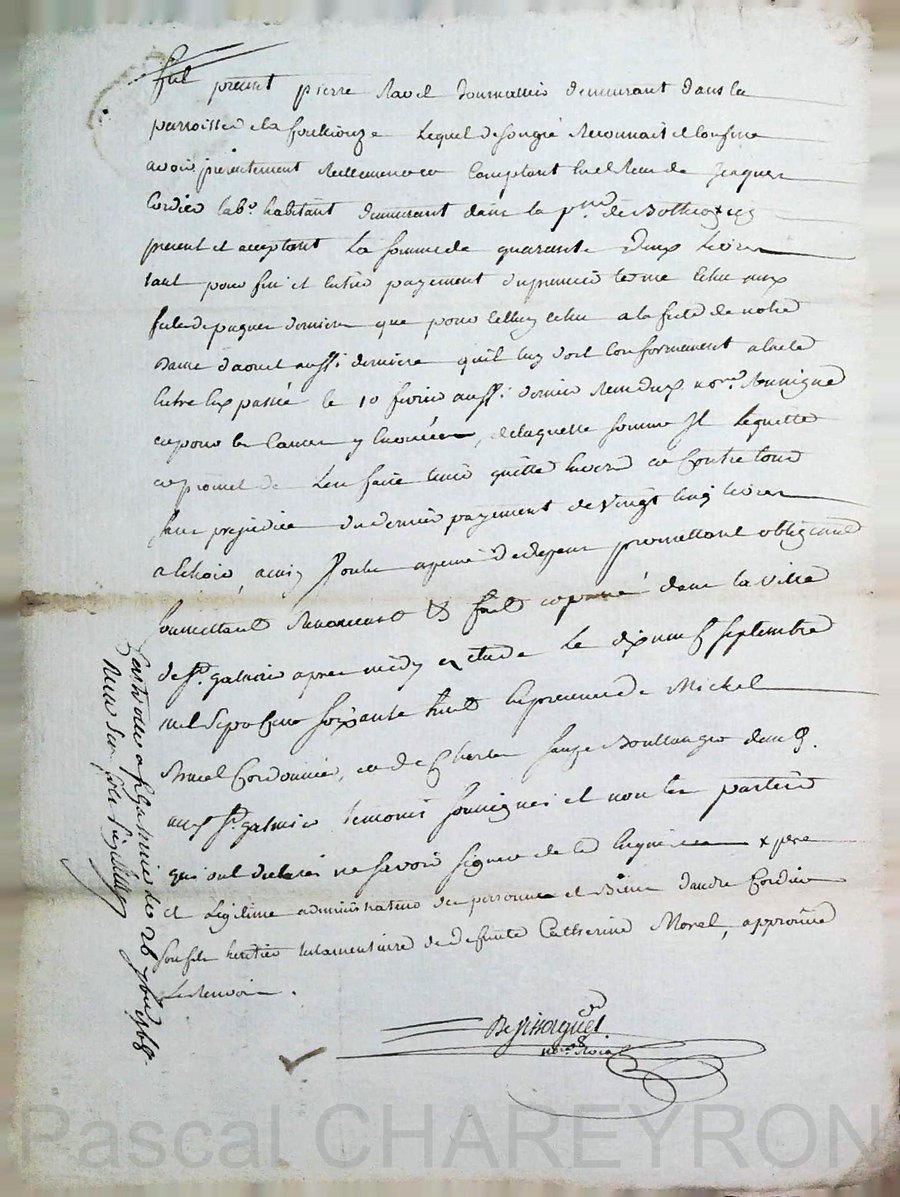 fut present pierre Ravel Journallier demeurant dans la
parroisse de la fouliouze Lequel de son gré Reconnait et Confesse
avoir presentement Reellement et Comptant heu et Receu de Jacques
Cordier lab.r habitant demeurant dans la p.sse de Botheon x icy
present et acceptant La somme de quarante deux Livres
tant pour fin et entier payement du premier terme echu aux
fetes de paques dernieres que pour celluy echu a la fete de notre
Dame d'aoust aussi derniere qu'il luy doit Conformement a l'acte
entre eux passé le 10 fevrier aussi dernier Receu
et pour les Causes y enoncées, de laquelle somme Il Lequitte
et promet de L'en faire tenir quitte envers et Contre tous
sans prejudice du dernier payement de Vingt Cinq Livres
a echoir, ainsy promettant obligeant
soumettant Renoncant &c fait et passé dans la Ville
de S.t galmier apres midy en etude Le dix neuf septembre
mil sept Cent soixante huit en presence de Michel
Cordonnier, et de Charles Boullanger dem.t
aud. S.t galmier temoins soussignés et non les parties
qui ont declaré ne savoir signer de ce Enquises x pere
et Legitime administrateur des personne et Biens d'andré Cordier
son fils heritier testamentaire de defunte Catherine Morel, approuvé
Le Renvoi.
not.re Roial
Controllé a S.t galmier le 26 7bre 1768
Pascal CHAREYRON